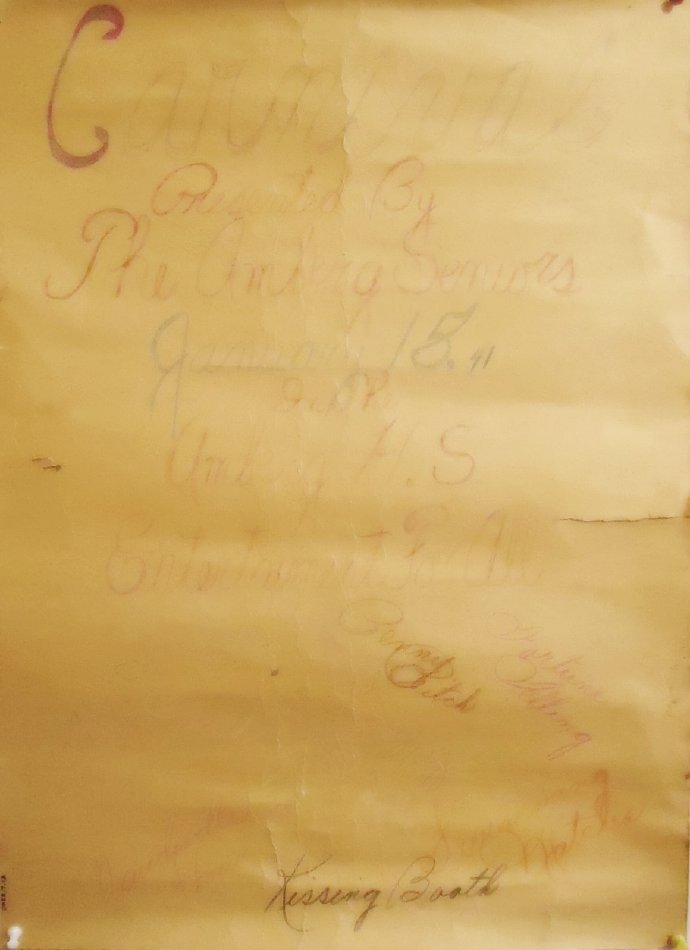 Carnival
Presented By
The Amberg Seniors
January 18. 41
Amberg H. S
Entertainment For All
Penny
Pitch
Fortune
Kissing Booth